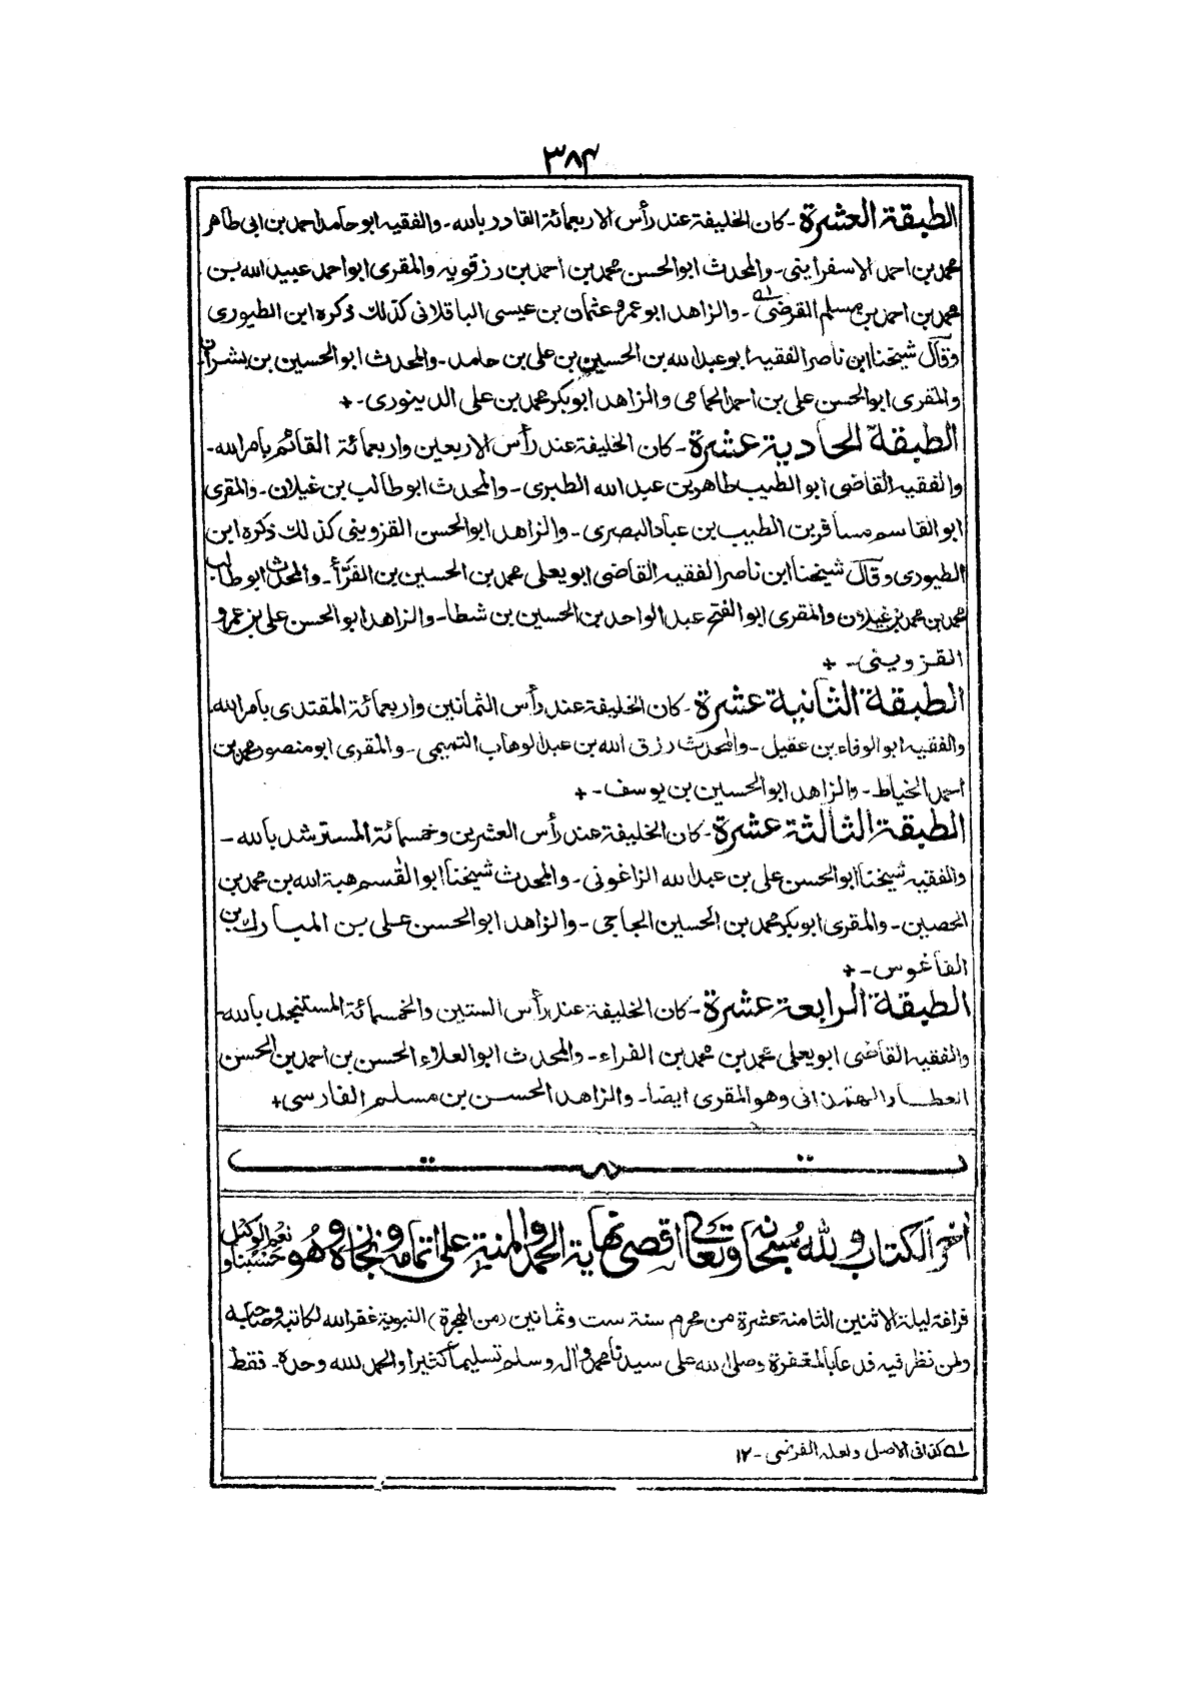 ٣٨٤
الطبقة العشرة - كان الخليفة عند رأس الاربعمائة القادر بالله - والفقيه ابو حامد احمد بن ابى طاهر
محمد بن احمد الاسفراينى - والمحدث ابو الحسن محمد بن احمد بن رزقويه والمقرى ابو احمد عبيد الله بن
محمد بن احمد بن مسلم القرضى ؂١ - والزاهد ابو عمرو عثمان بن عيسى الباقلانى كذلك ذكره ابن الطيورى
وقال شيخنا ابن ناصر الفقيه ابو عبد الله بن الحسين بن على بن حامد - والمحدث ابو الحسين بن بشران
والمقرى ابو الحسن على بن احمد الحمامى والزاهد ابو بكر محمد بن على الدينورى - +
الطبقة الحادية عشرة - كان الخليفة عند رأس الاربعين واربعمائة القائم بامر الله -
والفقيه القاضى ابو الطيب طاهر بن عبد الله الطبرى - والمحدث ابو طالب بن غيلان - والمقرى
ابو القاسم مسافر بن الطيب بن عباد البصرى - والزاهد ابو الحسن القزوينى كذلك ذكره ابن
الطيورى وقال شيخنا ابن ناصر الفقيه القاضى ابو يعلى محمد بن الحسين بن الفرّأ - والمحدث ابو طالب
محمد بن محمد بن غيلان والمقرى ابو الفتح عبد الواحد بن الحسين بن شطا - والزاهد ابو الحسن على بن عمرو
القزوينى - +
الطبقة الثانية عشرة - كان الخليفة عند رأس الثمانين واربعمائة المقتدى بامر الله
والفقيه ابو الوفاء بن عقيل - والمحدث رزق الله بن عبد الوهاب التميمى - والمقرى ابو منصور محمد بن
احمد الخياط - والزاهد ابو الحسين بن يوسف - +
الطبقة الثالثة عشرة - كان الخليفة عند رأس العشرين وخمسمائة المسترشد بالله -
والفقيه شيخنا ابو الحسن على بن عبد الله الزاغونى - والمحدث شيخنا ابو القٰسم هبة الله بن محمد بن
الحصين - والمقرى ابو بكر محمد بن الحسين الحاجى - والزاهد ابو الحسن على بن المبارك بن
الفاغوس - +
الطبقة الرابعة عشرة - كان الخليفة عند رأس الستين والخمسمائة المستنجد بالله -
والفقيه القاضى ابو يعلى محمد بن محمد بن الفراء - والمحدث ابو العلاء الحسن بن احمد بن الحسن
العطار الهمذانى وهو المقرى ايضا - والزاهد الحسن بن مسلم الفارسى +
تمت
اٰخر الكتاب ولله سبحانه وتعالى اقصى نهاية الحمد والمنة على اتمامه ونجازه وهو حسبنا ونعم الوكيل
فراغة ليلة الاثنين الثامنة عشرة من محرم سنة ست وثمانين (من الهجرة) النبوية غفر الله لكاتبه وصاحبه
ولمن نظر فيه فدعا بالمغفرة وصلى الله على سيدنا محمد واٰله وسلم تسليما كثيرا والحمد لله وحده - فقط
؂١ كذا فى الاصل ولعله الفرضى - ١٢